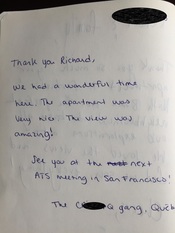 Thank you Richard,
We had a wonderful time
here. The apartment was
very nice. The view was
amazing!
See you at the next
ATS meeting in San Francisco!
The C Q gang, Québ